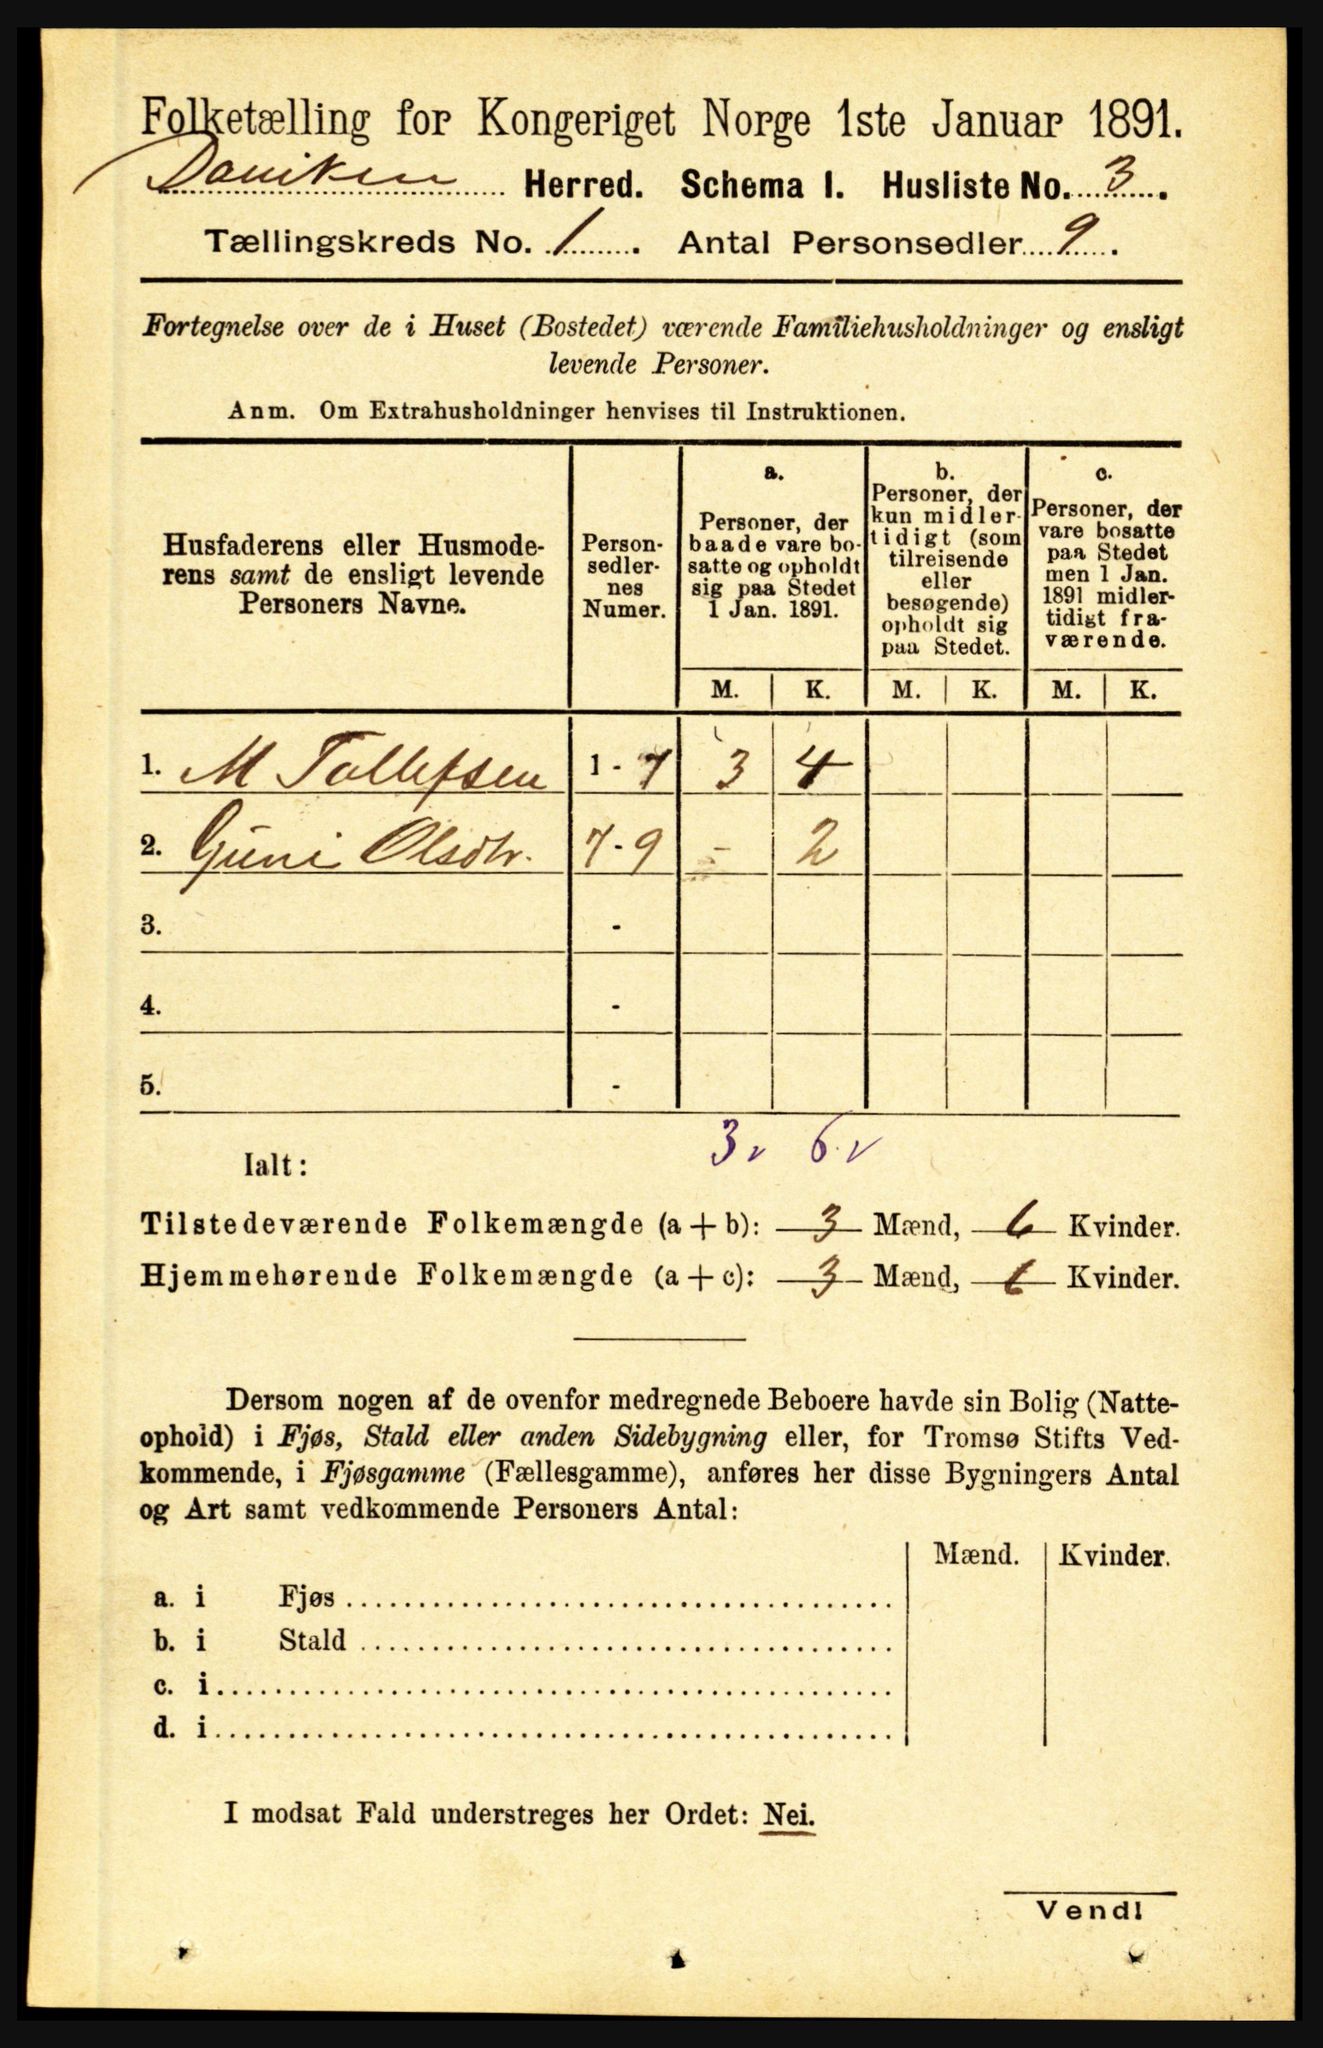 Folketælling for Kongeriget Norge 1ste Januar 1891.
Daviken Herred. Schema I. Husliste No. 3.
Tællingskreds No. 1. Antal Personsedler 9.
Fortegnelse over de i Huset (Bostedet) værende Familiehusholdninger og ensligt
levende Personer.
Anm. Om Extrahusholdninger henvises til Instruktionen.
Husfaderens eller Husmode-
rens samt de ensligt levende
Personers Navne.
Person-
sedler-
nes
Numer.
a.
Personer, der
baade vare bo-
satte og opholdt
sig paa Stedet
1 Jan. 1891.
b.
Personer, der
kun midler-
tidigt (som
tilreisende
eller
besøgende)
opholdt sig
paa Stedet.
c.
Personer, der
vare bosatte
paa Stedet
men 1 Jan.
1891 midler-
tidigt fra-
værende.
M. K. M. K. M. K.
1. M Tollefsen 1 - 7 3 4
2. Guni Olsdtr. 7 - 9 - 2
3. -
4. -
5. -
3 v 6 v
Ialt:
Tilstedeværende Folkemængde (a + b): 3 Mænd, 6 Kvinder.
Hjemmehørende Folkemængde (a + c): 3 Mænd, 6 Kvinder.
Dersom nogen af de ovenfor medregnede Beboere havde sin Bolig (Natte-
ophold) i Fjøs, Stald eller anden Sidebygning eller, for Tromsø Stifts Ved-
kommende, i Fjøsgamme (Fællesgamme), anføres her disse Bygningers Antal
og Art samt vedkommende Personers Antal:
Mænd. Kvinder.
a. i Fjøs
b. i Stald
c. i
d. i
I modsat Fald understreges her Ordet: Nei.
Vend!